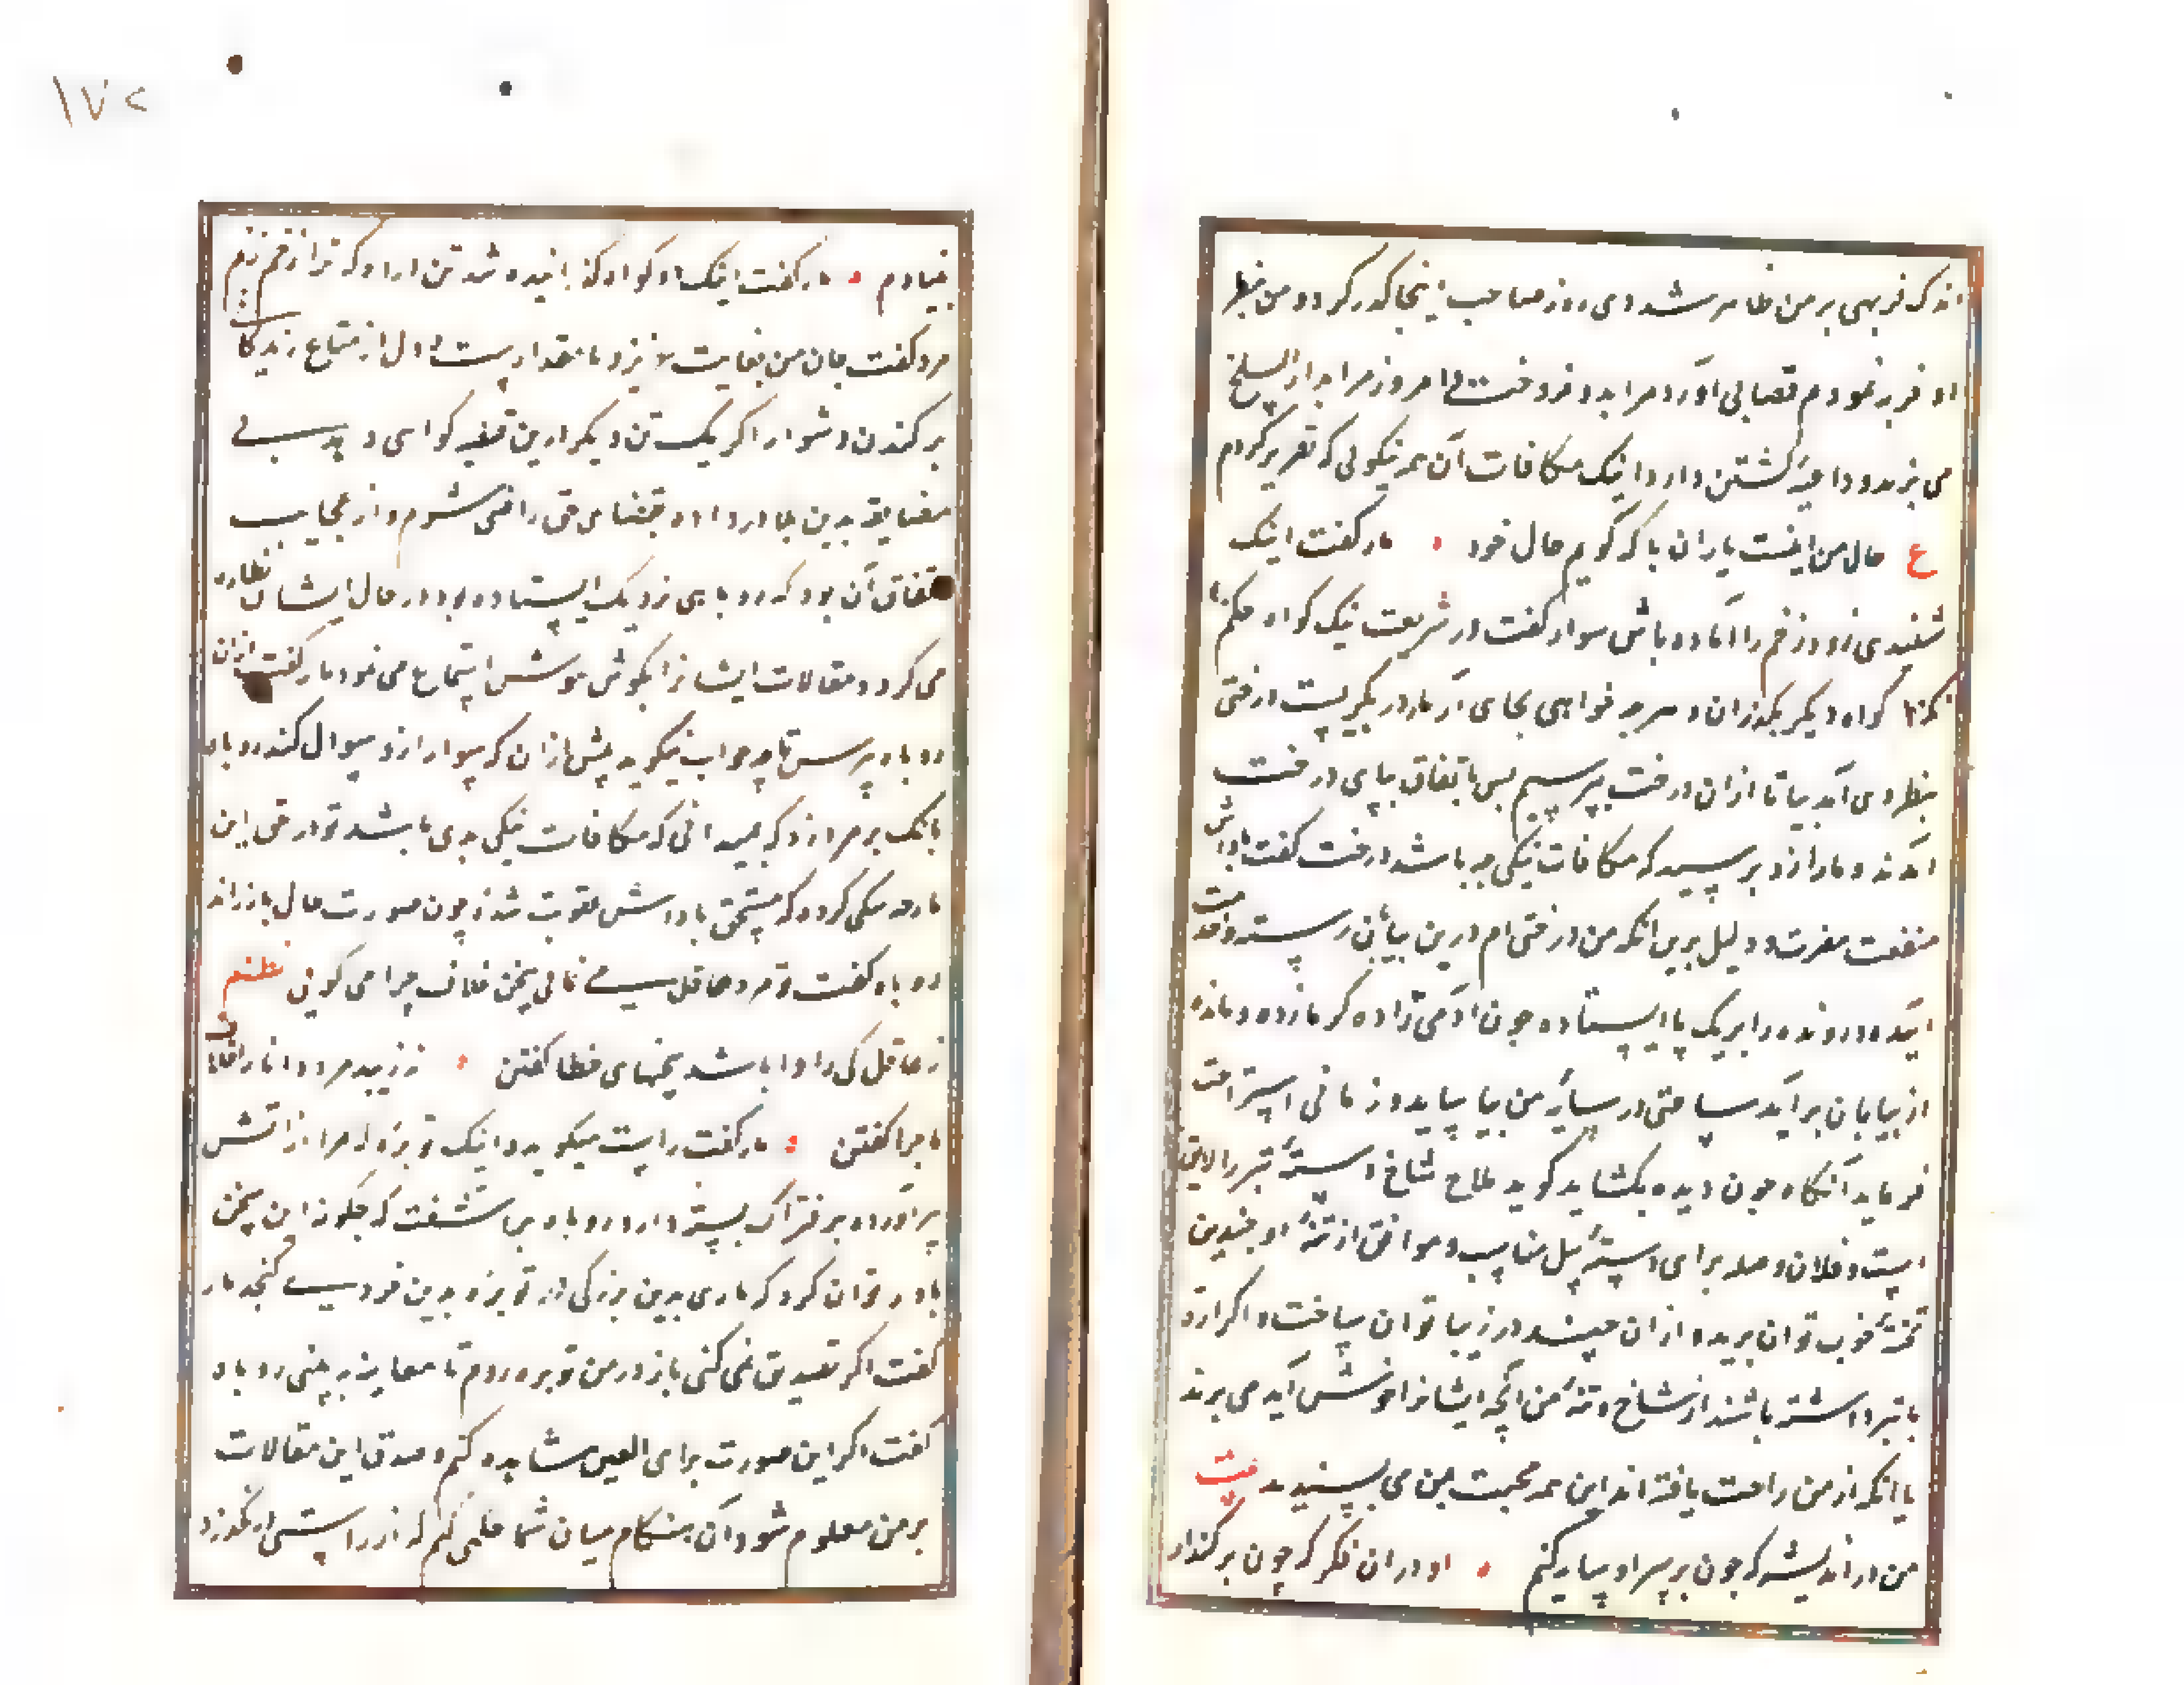 اندک فربهی بر من ظاهر شد دی روز صاحب اینجا گذر کرد و من بنظر
او فربه نمودم قصابی آورد مرا بدو فروخت و امروز مرا بدار السلخ
می برند و داعیهٔ کشتن دارد اینک مکافات آن همه نیکوئی که تقریر کردم
ع حال من اینست یاران با که گویم حال خود مار گفت اینک
شنیدی زود زخم را آماده باش سوار گفت در شریعت بیک گواه حکم
نکنند گواه دیگر بگذران و هر چه خواهی بجای آر مار در نگریست درختی
بنظر وی آمد بیا تا ازان درخت بپرسیم پس باتفاق بپای درخت
آمدند و مار ازو پرسید که مکافات نیکی چه باشد درخت گفت پاداش
منفعت مضرت و دلیل برین آنکه من درختی ام درین بیابان رسته و بخدمت
آینده و رونده را بر یک پا ایستاده چون آدمی زاده گرما زده و مانده
از بیابان برآید ساعتی در سایهٔ من بیاساید و زمانی استراحت
فرماید آنگاه چون دیده بکشاید گوید فلان شاخ دستهٔ تبر را لایق
است و فلان وصله برای دستهٔ بیل مناسب و موافق از تنهٔ او چندین
تختهٔ خوب توان برید و ازان چند در زیبا توان ساخت و اگر اره
یا تبر داشته باشند از شاخ و تنهٔ من آنچه ایشانرا خوش آید می برند
با آنکه از من راحت یافته اند این همه محبت بمن می پسندند بیت
من در اندیشه که چون بر سر او سایه کنم او در ان فکر که چون بر کندم از
بنیادم مار گفت اینک دو گواه گذرانیده شد تن در ده که ترا زخم زنم
مرد گفت جان من بغایت عزیزد تا مقدورست دل از متاع زندگانی
بر کندن دشوار اگر یک تن دیگر درین قضیه گواهی دهد بی
مضایقه بدین بلا در داده بقضای حق راضی شوم و از عجایب
اتفاق آن بود که روباهی نزدیک ایستاده بود در حال ایشان نظاره
می کرد و مقالات ایشانرا بگوش هوش استماع می نمود مار گفت ازان
روباه بپرس تا چه جواب میگوید پیش ازان که سوار ازو سوال کند روباه
بانگ بر مرد زد که نمیدانی که مکافات نیکی بدی باشد تو در حق این
مار چه نیکی کرده که مستحق پاداش عقوبت شدهٔ چون صورت حال باز راند
روباه گفت تو مرد عاقل می نمائی سخن خلاف چرا می گوئی نظم
ز عاقل کی روا باشد سخنهای خطا گفتن نزیبد مرد دانا را خلاف
ماجرا گفتن مار گفت راست میگوید و اینک توبره که مرا از آتش
برآورده بر فتراک بسته دارد روباه بر آشفت که چگونه این سخن
باور توان کرد که ماری بدین بزرگی در توبره بدین خوردی گنجد مار
گفت اگر تصدیق نمی کنی باز در من توبره روم تا معاینه ببینی روباه
گفت اگر این صورت برای العین مشاهده کنم و صدق این مقالات
بر من معلوم شود آن هنگام میان شما حکمی کنم که از راستی در نگذرد
۱۷۲